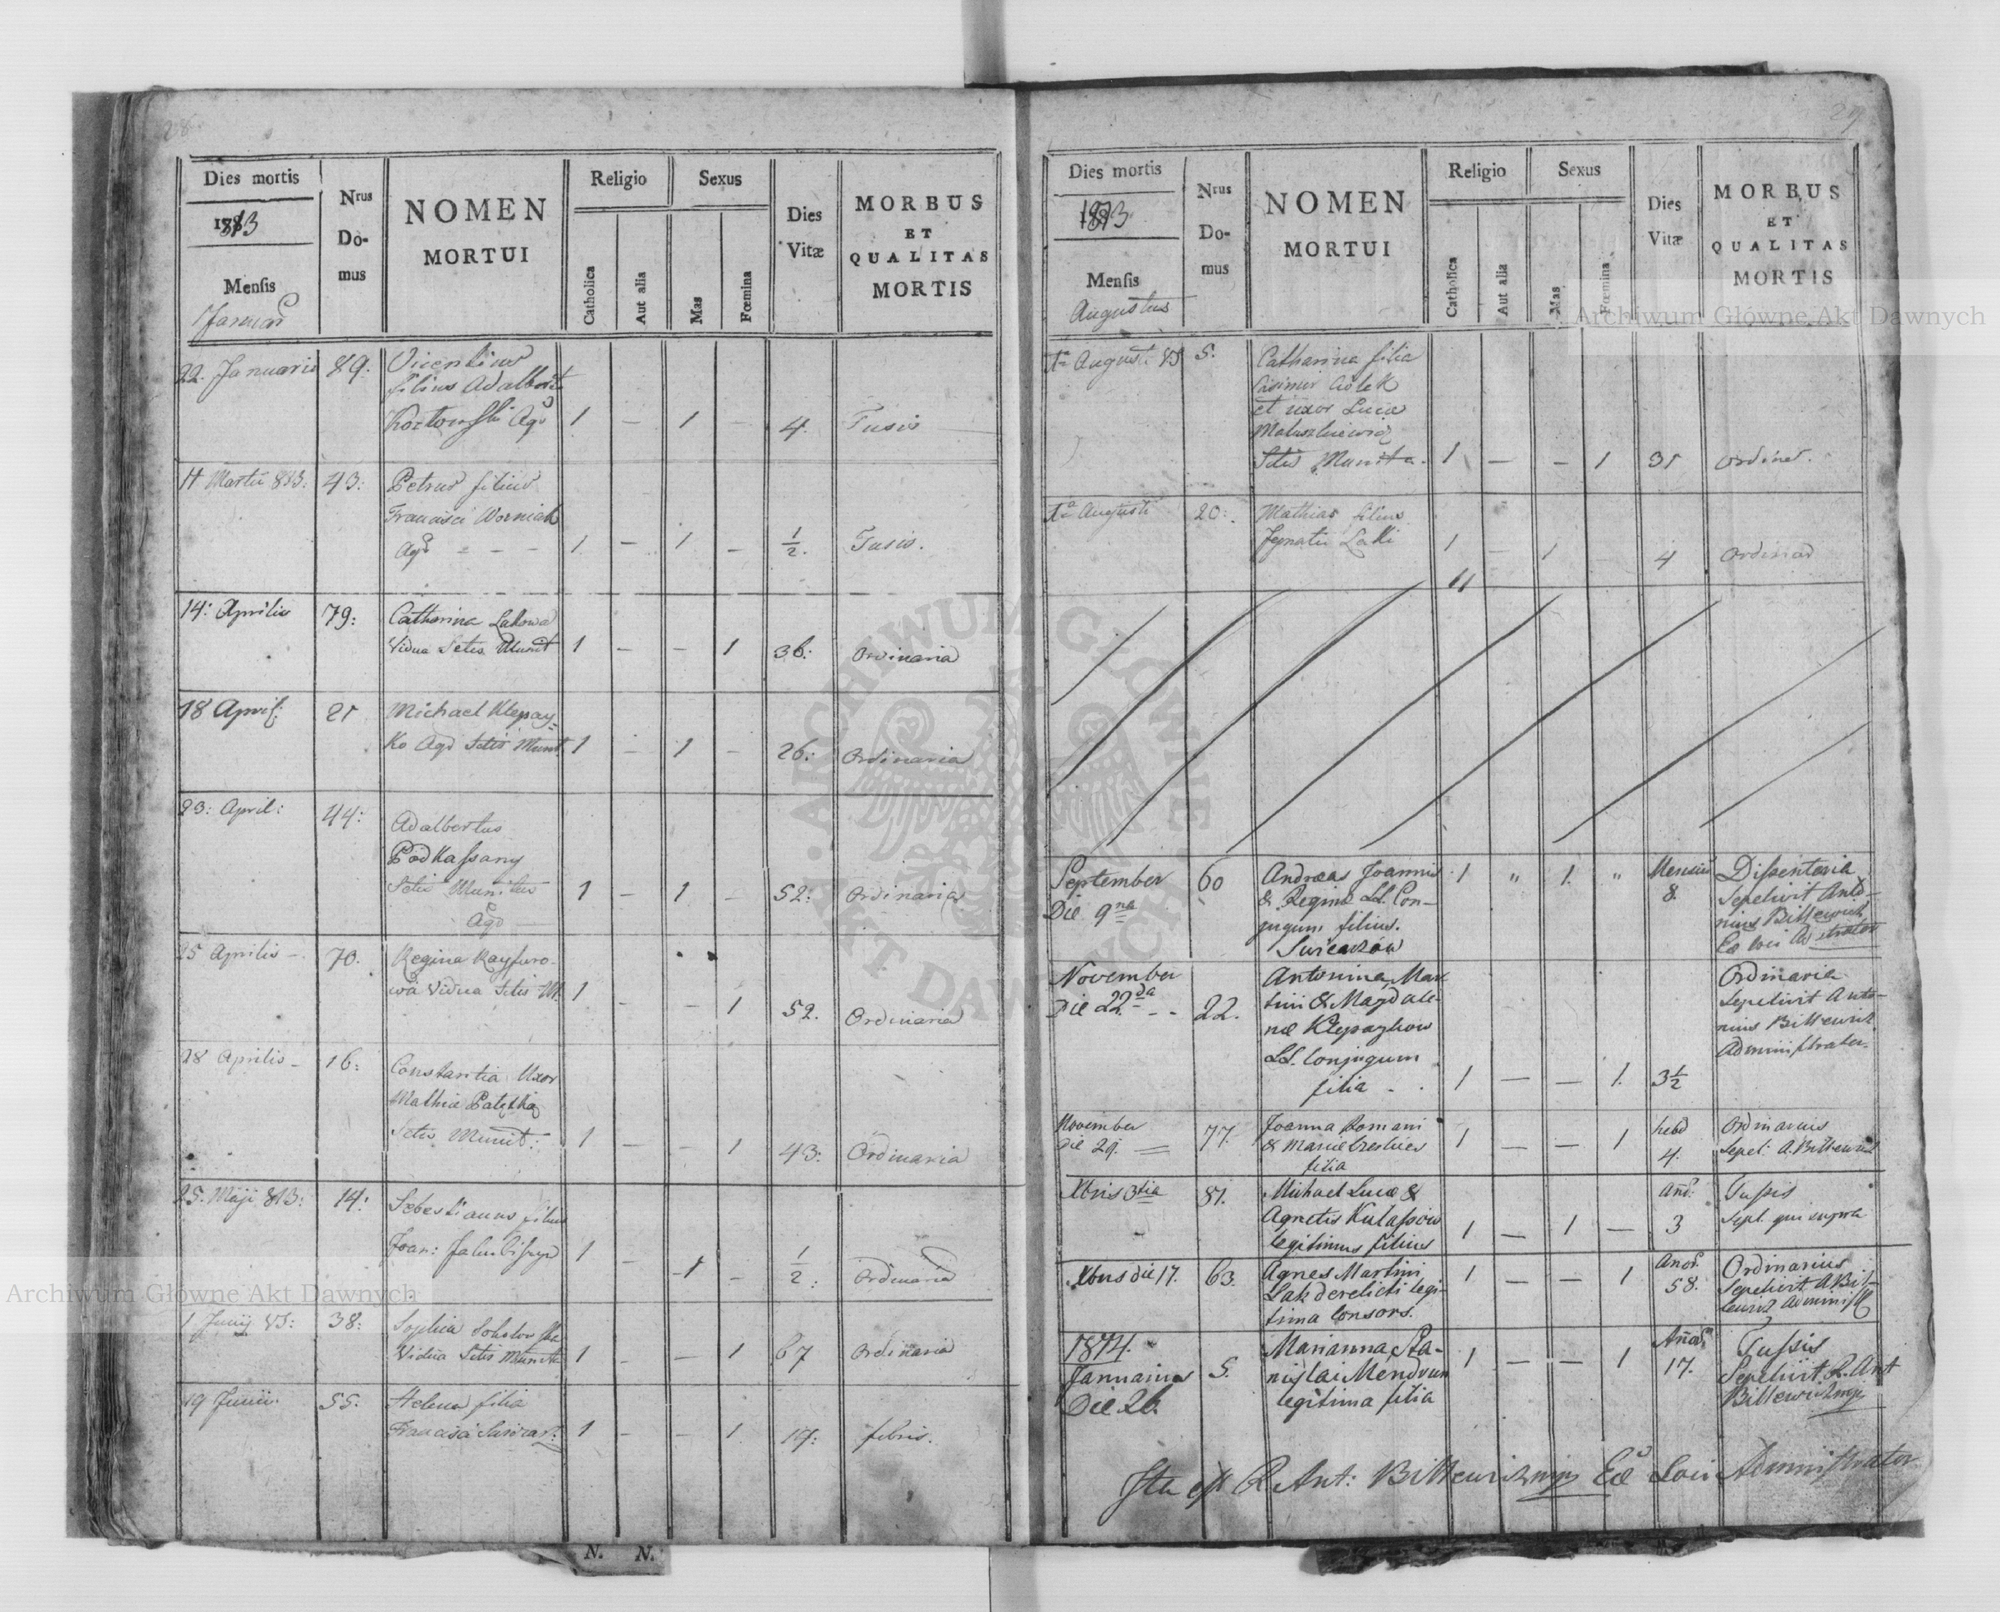 28
Dies mortis
1813
Mensis
Januar
Nrus
Do-
mus
NOMEN
MORTUI
Religio
Catholica
Aut alia
Sexus
Mas
Fœmina
Dies
Vitæ
MORBUS
ET
QUALITAS
MORTIS
22. Januarii 89.
filius Adalberti
1 — 1 — 4. Tusis
11 Martii 813: 43:
Petrus filius
Francisci Worniak
Agr - - -
1 — 1 — 1/2. Tusis.
14: Aprilis 79:
Catharina Lakowa
Vidua Setis Munit 1 — — 1 36: Ordinaria
18 April: 21
Michael Klepay-
ko Agr Setis Munit. 1 — 1 — 26: Ordinaria
23: April: 44:
Adalbertus
Podkassany
Setis Munitus 1 — 1 — 52: Ordinaria
Agr
25 Aprilis —. 70.
Regina Kayfuro-
wa Vidua Setis M. 1 — — 1 52. Ordinaria
28 Aprilis — 16:
Constantia Uxor
Mathiæ
Setis Munit: 1 — — 1 43: Ordinaria
25. Maji 813: 14:
Sebestianus filius
Joan: 1 — 1 — 1/2: Ordinaria
1 Junij 38:
Sophia
Vidua Setis Munita 1 — — 1 67 Ordinaria
19 Junii. 55.
Helena filia
Francisci 1 — — 1 17: febris.
29
Dies mortis
1813
Mensis
Augustus
Nrus
Do-
mus
NOMEN
MORTUI
Religio
Catholica
Aut alia
Sexus
Mas
Fœmina
Dies
Vitæ
MORBUS
ET
QUALITAS
MORTIS
August: 5.
Catharina filia
Casimir
et uxor Lucæ
Setis Munita. 1 — — 1 31 Ordinar.
Augusti 20:
Mathias filius
Ignatii Laki 1 — 1 4 Ordinar
September 60
Die 9na
Andreas Joannis
& Reginæ LL Con-
jugum filius.
1 " 1. "
Mensium
8.
Dissenteria
Sepelivit Anto-
nius Bittewicz
Ec loci Ad-strator
November
Die 22da - - 22.
Antonina, Mar-
tini & Magdale-
næ Klepaykow
LL. Conjugum
filia - . 1 — — 1. 3 1/2
Ordinaria
Sepelivit Anto-
nius Bittewicz
Administrator.
November
Die 29. 77.
Joanna Romani
& Mariæ
filia
1 — — 1
hebd
4.
Ordinarius
Sepel: A. Bittewicz
Xbris 3tia 81.
Michael Lucæ &
Agnetis Kulassow
legitimus filius
1 — 1 —
Ano:
3
Tussis
Sept. qui supra
Xbris die 17. 63.
Agnes Martini
Lak derelicti legi-
tima Consors.
1 — — 1
58.
Ordinarius
Sepelivit A. Bit-
tewicz Administ
1814.
Januarius 5.
Die 26.
Marianna, Sta-
nislai Mendrun
legitima filia
1 — — 1
17.
Tussis
Sepelivit R. Ant
Bittewicz mp
Ita est R Ant: Bittewicz mp Ecc Loci Administrator
N. N.
Archiwum Główne Akt Dawnych
Archiwum Główne Akt Dawnych
ARCHIWUM GŁÓWNE AKT DAWNYCH